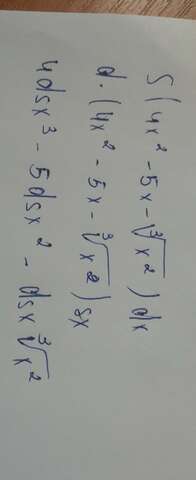 S(4x² - 5x - ∛x²) dx
d · (4x² - 5x - ∛x²) sx
4dsx³ - 5dsx² - dsx ∛x²